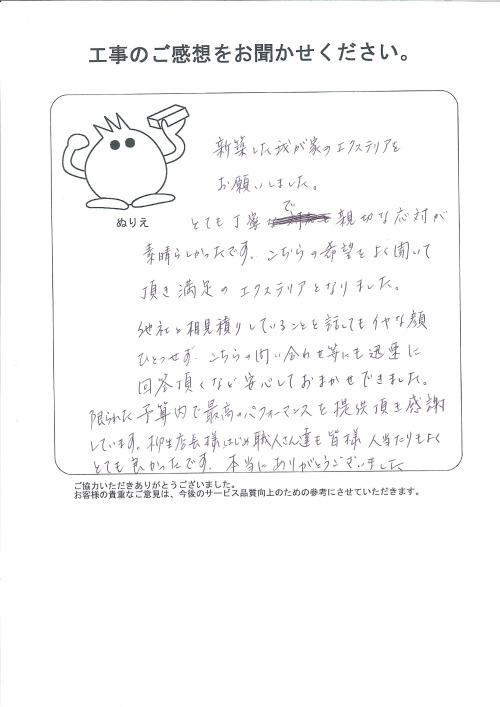 工事のご感想をお聞かせください。
ぬりえ
新築した我が家のエクステリアを
お願いしました。
とても丁寧で親切な応対が
素晴らしかったです。こちらの希望をよく聞いて
頂き満足のエクステリアとなりました。
他社と相見積りしていることを話してもイヤな顔
ひとつせず、こちらの問い合わせ等にも迅速に
回答頂くなど安心しておまかせできました。
限られた予算内で最高のパフォーマンスを提供頂き感謝
しています。柳生店長様はじめ職人さん達も皆様人当たりもよく
とても良かったです。本当にありがとうございました
ご協力いただきありがとうございました。
お客様の貴重なご意見は、今後のサービス品質向上のための参考にさせていただきます。